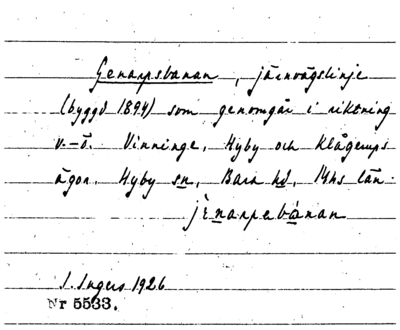 Genarpsbanan, järnvägslinje
(byggd 1894) som genomgår i riktning
v.-ö. Vinninge, Hyby och Klågerups
ägor. Hyby sn, Bara hd, Mhs län.
jènarpsbánan
I. Ingers 1926
Nr 5533.